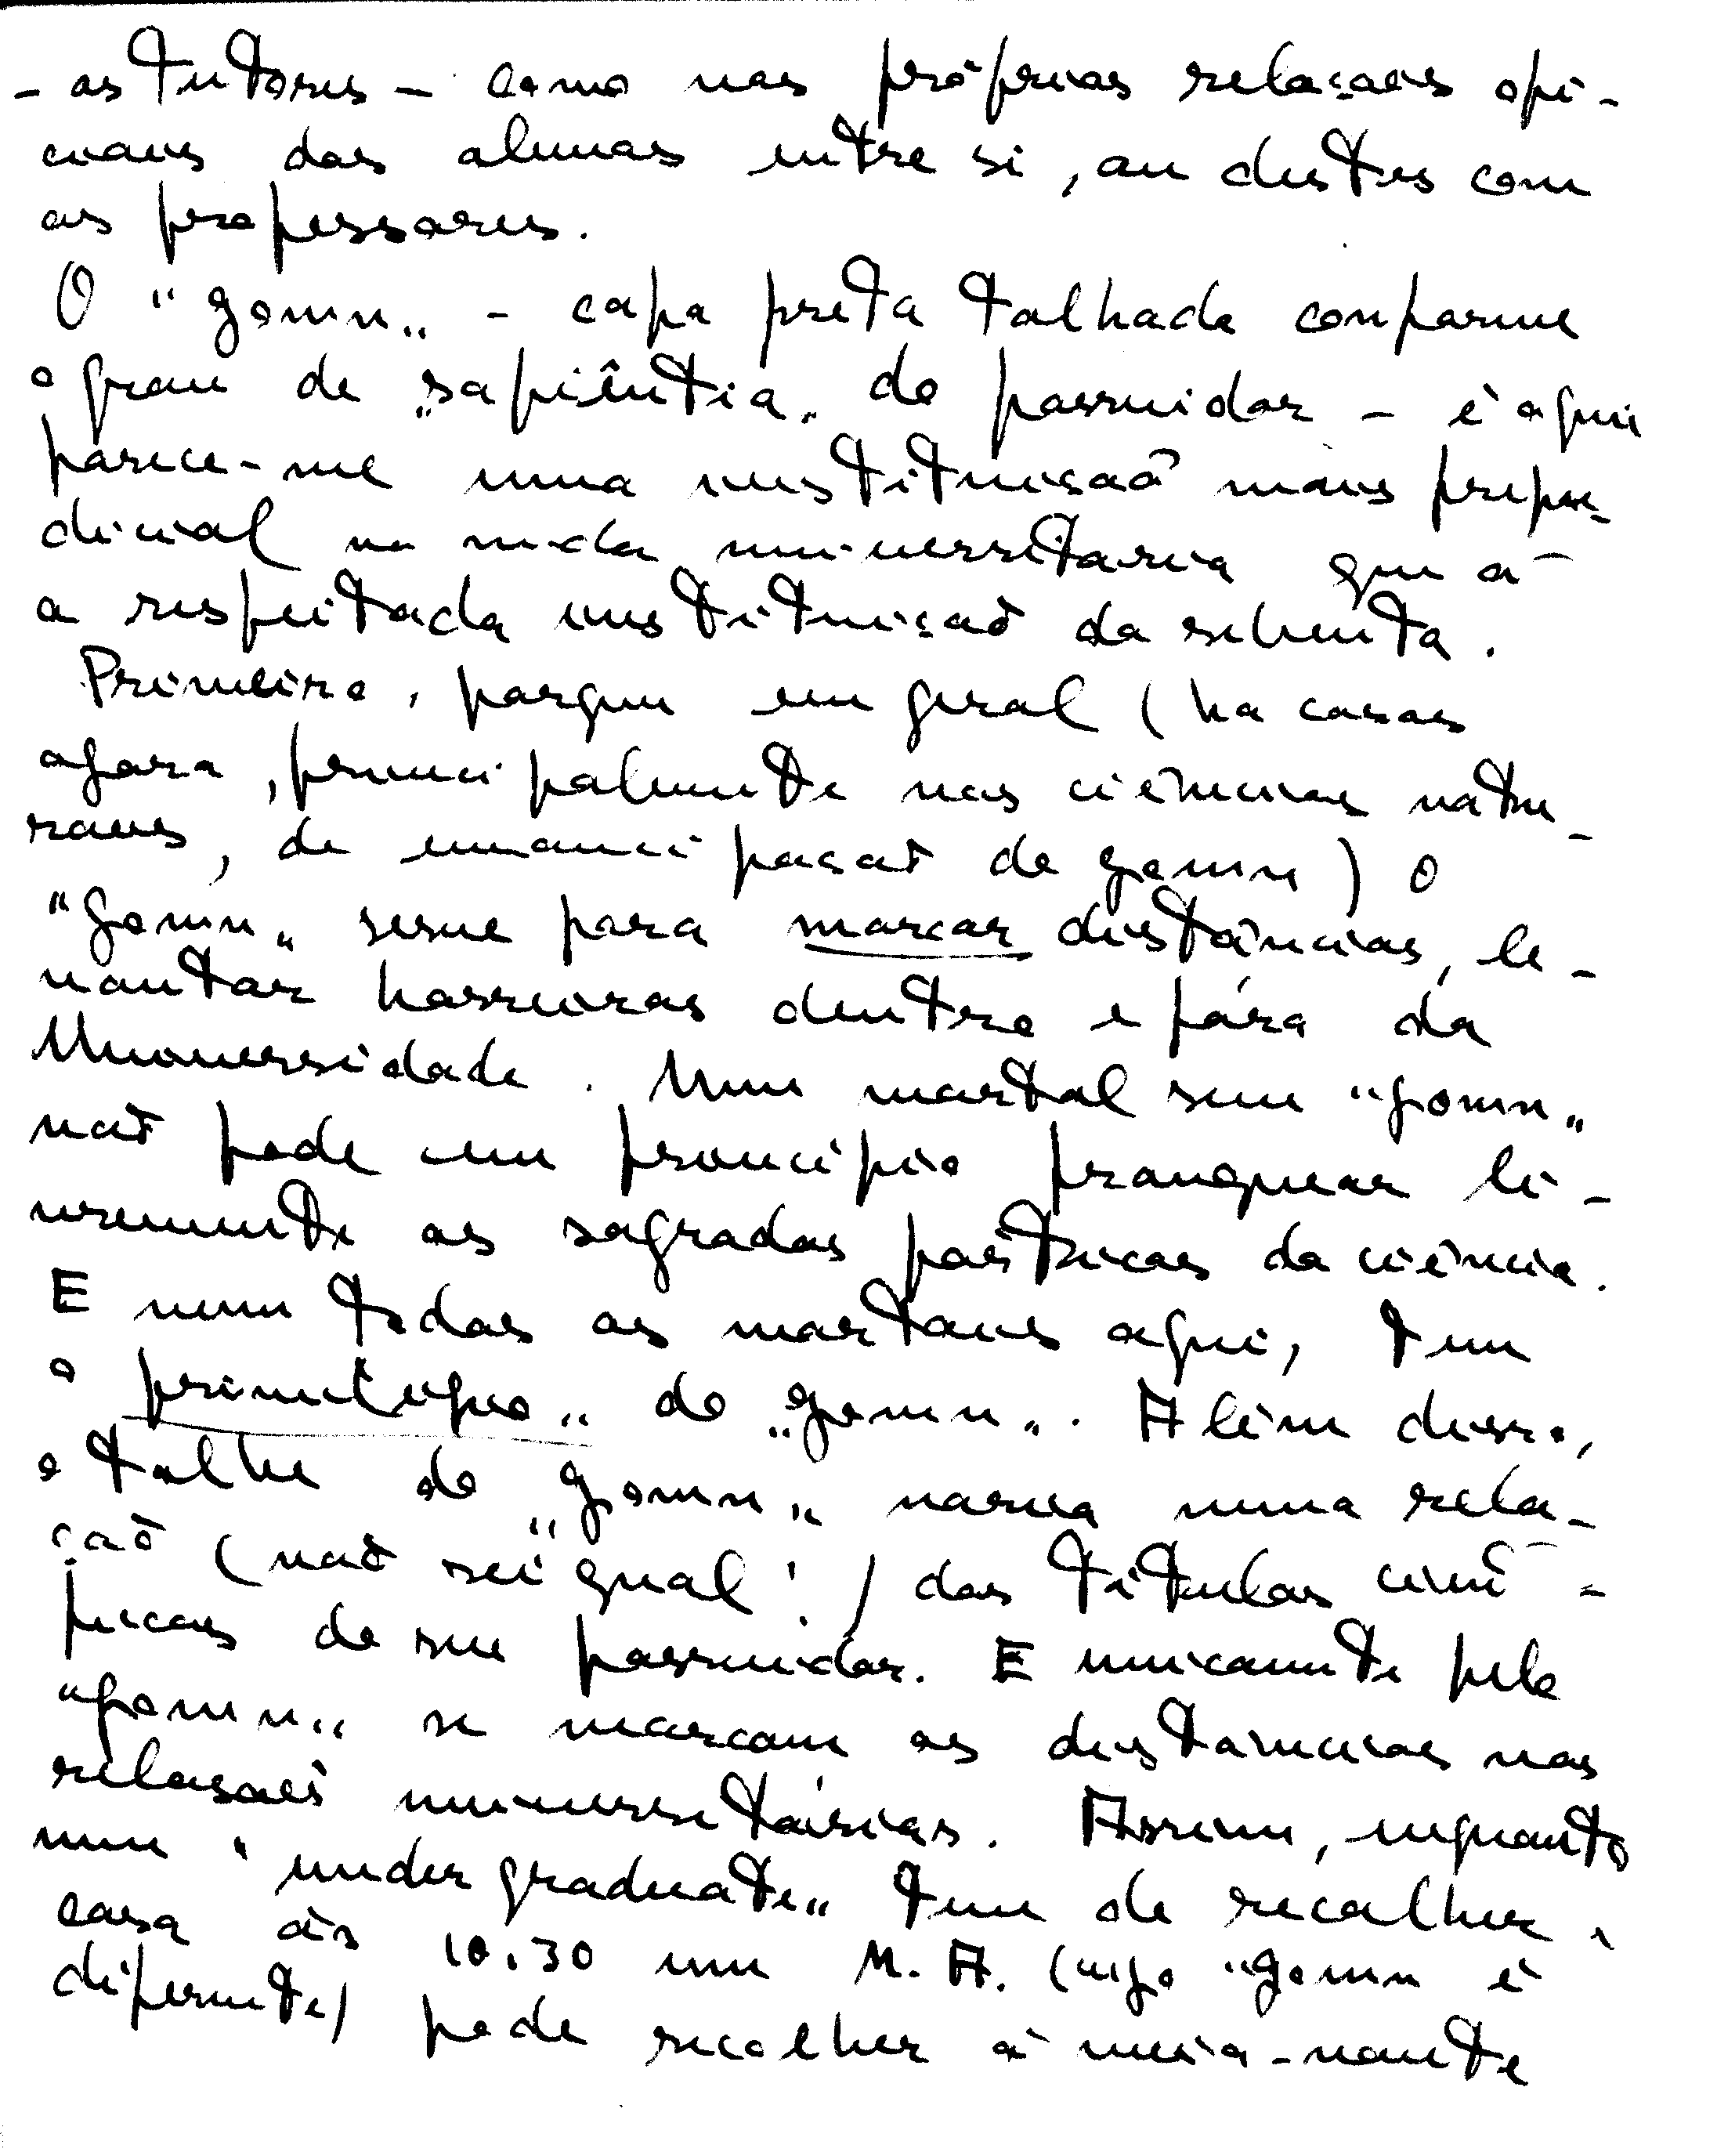 - os tutores - como nas próprias relações ofi-
ciais dos alunos entre si, ou destes com
os professores.
O "gown" - capa preta talhada conforme
o grau de "sapiêntia" do possuidor - é aqui
parece-me uma instituisão mais preju-
dicial na vida universitaria que a
a respeitada instituição da sebenta.
Primeiro, porque em geral (ha casos
agora, principalmente nas ciências natu-
rais, de emancipasão do gown) o
"gown" serve para marcar distâncias, le-
vantar barreiras dentro e fóra da
Universidade. Um mortal sem "gown"
não pode em principio franquear li-
vremente os sagrados pórticos da ciência.
E nem todos os mortais aqui, tem
o privilégio" do "gown". Além disso,
o talhe do "gown" varia numa rela-
ção (não sei qual!) dos titulos cientí-
ficos do seu possuidor. E unicamente pelo
"gown" se marcam as distancias nas
relasões universitárias. Assim, enquanto
um "undergraduate" tem de recolher a
casa ás 10.30 um M.A. (cujo "gown é
diferente) pode recolher á meia-noite